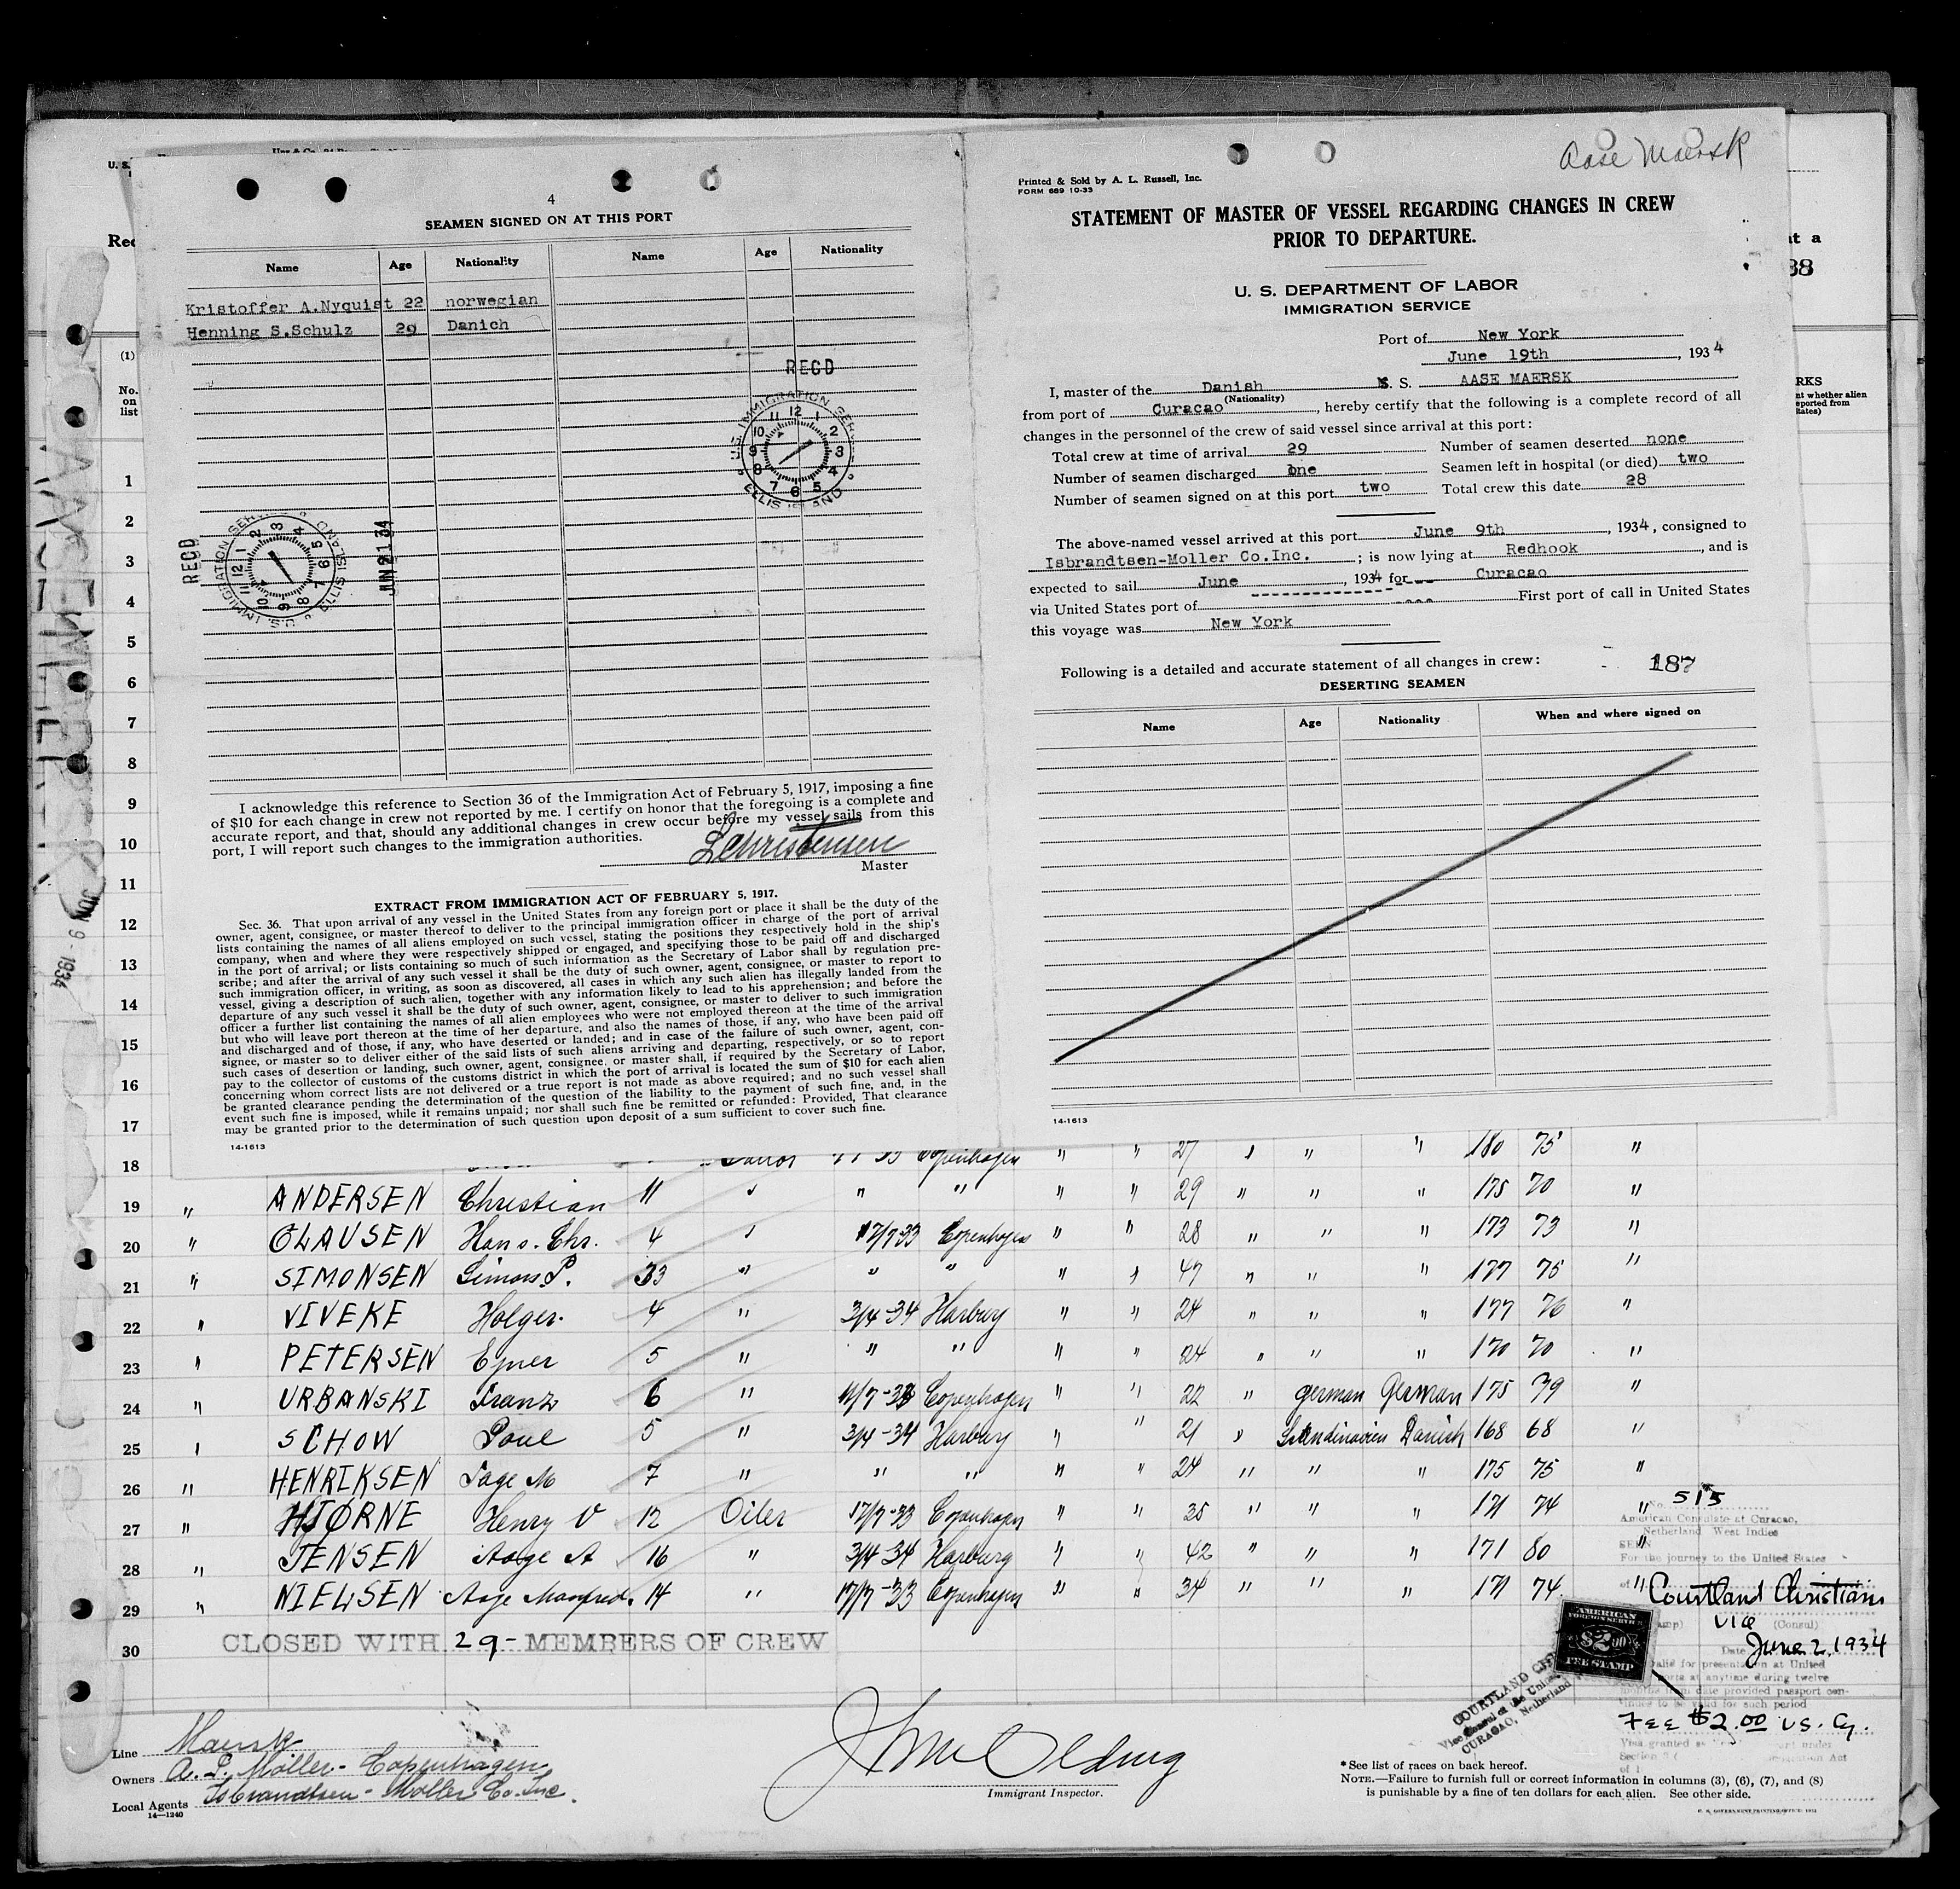 4
SEAMEN SIGNED ON AT THIS PORT
Name Age Nationality Name Age Nationality
Kristoffer A.Nyquist 22 norwegian
Henning S.Schulz 29 Danich
RECD
U.S. IMMIGRATION SERVICE
ELLIS ISLAND
RECD
U.S. IMMIGRATION SERVICE
ELLIS ISLAND
JUN 21 34
I acknowledge this reference to Section 36 of the Immigration Act of February 5, 1917, imposing a fine
of $10 for each change in crew not reported by me. I certify on honor that the foregoing is a complete and
accurate report, and that, should any additional changes in crew occur before my vessel sails from this
port, I will report such changes to the immigration authorities.
LChristensen
Master
EXTRACT FROM IMMIGRATION ACT OF FEBRUARY 5, 1917.
Sec. 36. That upon arrival of any vessel in the United States from any foreign port or place it shall be the duty of the
owner, agent, consignee, or master thereof to deliver to the principal immigration officer in charge of the port of arrival
lists containing the names of all aliens employed on such vessel, stating the positions they respectively hold in the ship's
company, when and where they were respectively shipped or engaged, and specifying those to be paid off and discharged
in the port of arrival; or lists containing so much of such information as the Secretary of Labor shall by regulation pre-
scribe; and after the arrival of any such vessel it shall be the duty of such owner, agent, consignee, or master to report to
such immigration officer, in writing, as soon as discovered, all cases in which any such alien has illegally landed from the
vessel, giving a description of such alien, together with any information likely to lead to his apprehension; and before the
departure of any such vessel it shall be the duty of such owner, agent, consignee, or master to deliver to such immigration
officer a further list containing the names of all alien employees who were not employed thereon at the time of the arrival
but who will leave port thereon at the time of her departure, and also the names of those, if any, who have been paid off
and discharged and of those, if any, who have deserted or landed; and in case of the failure of such owner, agent, con-
signee, or master so to deliver either of the said lists of such aliens arriving and departing, respectively, or so to report
such cases of desertion or landing, such owner, agent, consignee. or master shall, if required by the Secretary of Labor,
pay to the collector of customs of the customs district in which the port of arrival is located the sum of $10 for each alien
concerning whom correct lists are not delivered or a true report is not made as above required; and no such vessel shall
be granted clearance pending the determination of the question of the liability to the payment of such fine, and, in the
event such fine is imposed, while it remains unpaid; nor shall such fine be remitted or refunded: Provided, That clearance
may be granted prior to the determination of such question upon deposit of a sum sufficient to cover such fine.
14-1613
Aase Maersk
Printed & Sold by A. L. Russell, Inc.
FORM 689 10-33
STATEMENT OF MASTER OF VESSEL REGARDING CHANGES IN CREW
PRIOR TO DEPARTURE.
U. S. DEPARTMENT OF LABOR
IMMIGRATION SERVICE
Port of New York
June 19th, 1934
I, master of the Danish S. S. AASE MAERSK
(Nationality)
from port of Curacao, hereby certify that the following is a complete record of all
changes in the personnel of the crew of said vessel since arrival at this port:
Total crew at time of arrival 29 Number of seamen deserted none
Number of seamen discharged one Seamen left in hospital (or died) two
Number of seamen signed on at this port two Total crew this date 28
The above-named vessel arrived at this port June 9th, 1934, consigned to
Isbrandtsen-Moller Co.Inc.; is now lying at Redhook, and is
expected to sail June, 1934 for Curacao
via United States port of ---- First port of call in United States
this voyage was New York
Following is a detailed and accurate statement of all changes in crew:
187
DESERTING SEAMEN
Name Age Nationality When and where signed on
14-1613
(1)
No.
on
list
1
2
3
4
5
6
7
8
9
10
11
12
13
14
15
16
17
JUN 9 - 1934
18 Copenhagen " " 27 " " " 180 75 "
19 " ANDERSEN Christian 11 " " " " " 29 " " " 175 70 "
20 " CLAUSEN Hans. Chr. 4 " 17/7 33 Copenhagen " " 28 " " " 173 73 "
21 " SIMONSEN Simons P. 33 " " " " " 47 " " " 177 75 "
22 " VIVEKE Holger. 4 " 3/4-34 Harburg " " 24 " " " 177 76 "
23 " PETERSEN Ejner 5 " " " " " 24 " " " 170 70 "
24 " URBANSKI Franz 6 " Copenhagen " " 22 " german German 175 79 "
25 " SCHOW Poul 5 " 3/4-34 Harburg " " 21 " Scandinavien Danish 168 68 "
26 " HENRIKSEN Tage M 7 " " " " " 24 " " " 175 75 "
27 " HJØRNE Henry V 12 Oiler 17/7-33 Copenhagen " " 25 " " " 171 74 "
28 " JENSEN Aage A 16 " 3/4 34 Harburg " " 42 " " " 171 80 "
29 " NIELSEN Aage Manfred. 14 " 17/7-33 Copenhagen " " 34 " " " 171 74 "
30 CLOSED WITH 29- MEMBERS OF CREW
No. 515
American Consulate at Curacao,
Netherland West Indies
SEEN
For the journey to the United States
Courtland Christiani
Vice (Consul)
Date June 2, 1934
AMERICAN
FOREIGN SERVICE
$2.00
FEE STAMP
Fee $2.00 U.S. Cy.
Line Maersk
Owners A. P. Möller - Copenhagen
Local Agents Isbrandtsen - Moller Co. Inc.
14—1240
Immigrant Inspector.
* See list of races on back hereof.
NOTE.—Failure to furnish full or correct information in columns (3), (6), (7), and (8)
is punishable by a fine of ten dollars for each alien. See other side.